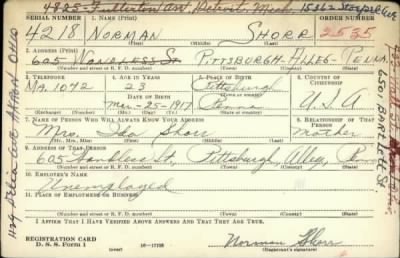 4825 - Fullerton Ave, Detroit, Mich.
SERIAL NUMBER 1. NAME (Print) ORDER NUMBER
4218 NORMAN SHORR 2535
(First) (Middle) (Last)
2. ADDRESS (Print)
605 WANDLESS ST PITTSBURGH - ALLEG - PENNA.
(Number and street or R. F. D. number) (Town) (County) (State)
3. TELEPHONE 4. AGE IN YEARS 5. PLACE OF BIRTH 6. COUNTRY OF CITIZENSHIP
MA. 1072 23 Pittsburgh
DATE OF BIRTH
Mar-25-1917 Penna U.S.A
(Exchange) (Number) (Mo.) (Day) (Yr.) (State or country)
7. NAME OF PERSON WHO WILL ALWAYS KNOW YOUR ADDRESS 8. RELATIONSHIP OF THAT PERSON
Mrs. Ida Shorr Mother
(Mr., Mrs., Miss) (First) (Middle) (Last)
9. ADDRESS OF THAT PERSON
605 Wandless St, Pittsburgh, Alleg, Penna
(Number and street or R. F. D. number) (Town) (County) (State)
10. EMPLOYER'S NAME
Unemployed
11. PLACE OF EMPLOYMENT OR BUSINESS
(Number and street or R. F. D. number) (Town) (County) (State)
I AFFIRM THAT I HAVE VERIFIED ABOVE ANSWERS AND THAT THEY ARE TRUE.
REGISTRATION CARD
D. S. S. Form 1 (over) 16-17105 Norman Shorr
(Registrant's signature)
AKRON OHIO
6507 BARTLETT ST.